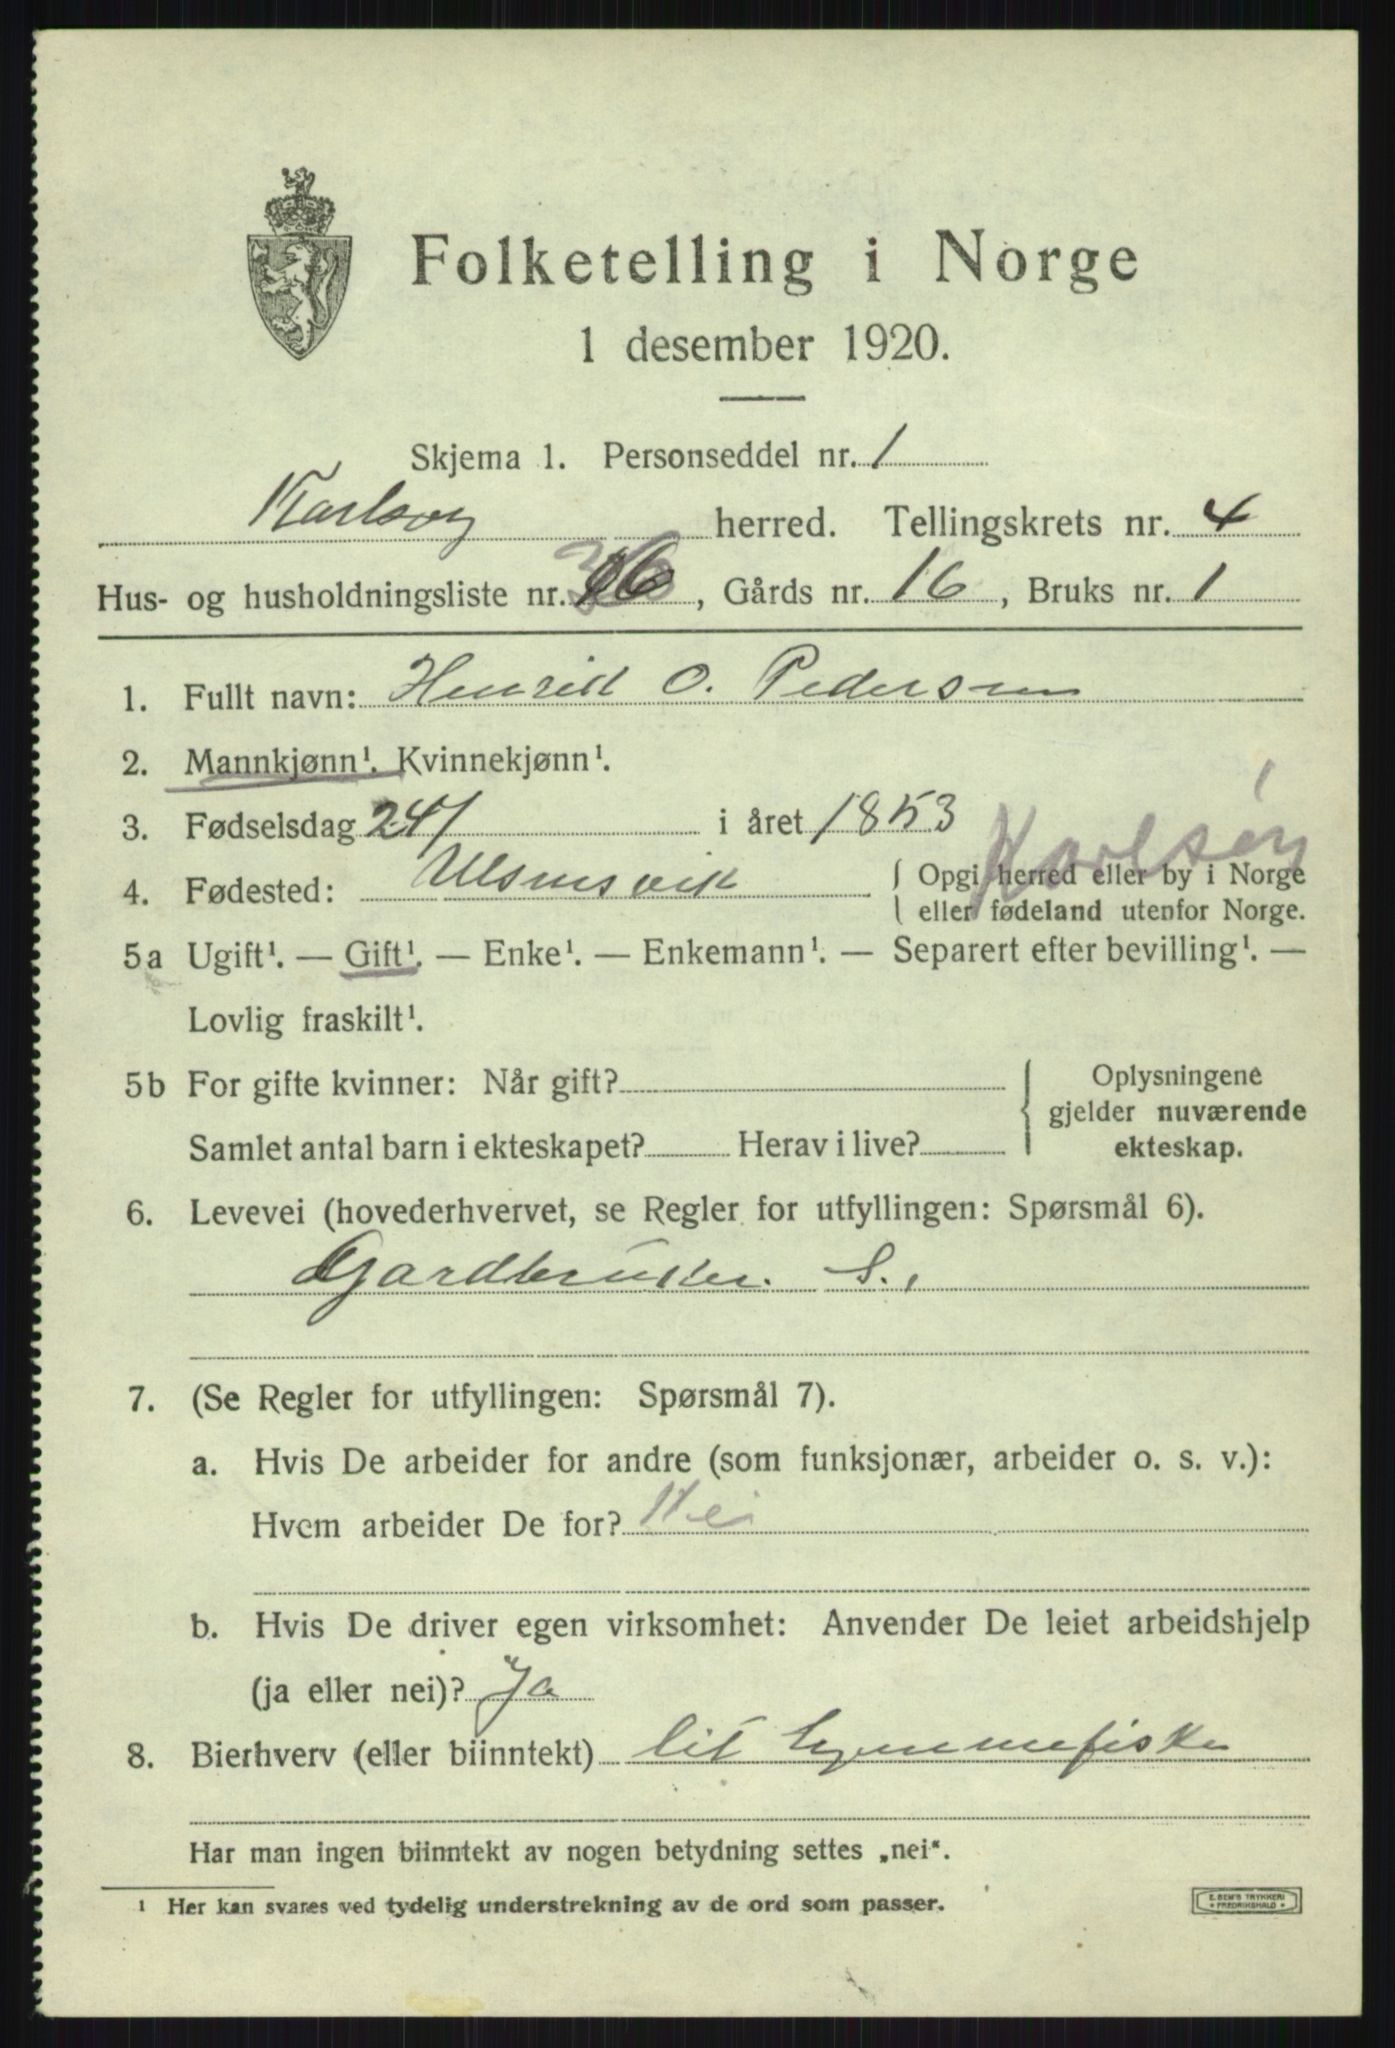 Folketelling i Norge
1 desember 1920.
Skjema 1. Personseddel nr. 1
Karlsøy herred. Tellingskrets nr. 4
Hus- og husholdningsliste nr. 16, Gårds nr. 16, Bruks nr. 1
1. Fullt navn: Henrik O. Pedersen
2. Mannkjønn¹. Kvinnekjønn¹.
3. Fødselsdag 24/ i året 1853
Karlsøy
4. Fødested: { Opgi herred eller by i Norge
eller fødeland utenfor Norge.
5a Ugift¹. — Gift¹. — Enke¹. — Enkemann¹. — Separert efter bevilling¹. —
Lovlig fraskilt¹.
5b For gifte kvinner: Når gift? { Oplysningene
gjelder nuværende
Samlet antal barn i ekteskapet? Herav i live? ekteskap.
6. Levevei (hovederhvervet, se Regler for utfyllingen: Spørsmål 6).
Gardbruker. S.
7. (Se Regler for utfyllingen: Spørsmål 7).
a. Hvis De arbeider for andre (som funksjonær, arbeider o. s. v.):
Hvem arbeider De for? Nei
b. Hvis De driver egen virksomhet: Anvender De leiet arbeidshjelp
(ja eller nei)? Ja
8. Bierhverv (eller biinntekt) lit hjemmefiske
Har man ingen biinntekt av nogen betydning settes „nei“.
¹ Her kan svares ved tydelig understrekning av de ord som passer.
E. SEM'S TRYKKERI
FREDRIKSHALD